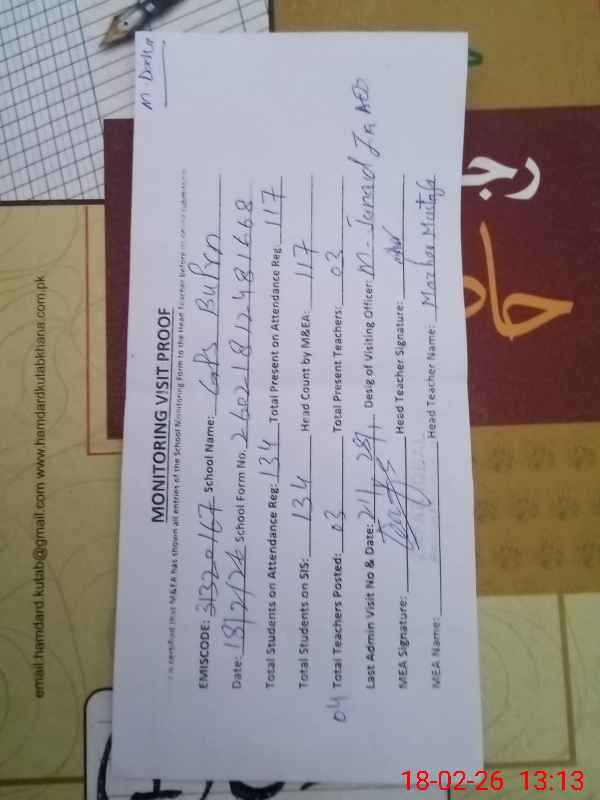 M. Danha
MONITORING VISIT PROOF
It is certified that M&EA has shown all entries of the School Monitoring Form to the Head Teacher before its online submission
EMISCODE: 31320167 School Name: GPS
Date: 18/2/26 School Form No. 26021812481668
Total Students on Attendance Reg: 134 Total Present on Attendance Reg: 117
Total Students on SIS: 134 Head Count by M&EA: 117
04 Total Teachers Posted: 03 Total Present Teachers: 03
Last Admin Visit No & Date: Desig of Visiting Officer: M- Junaid AEO
MEA Signature: Head Teacher Signature:
MEA Name: Head Teacher Name: Mazhar Mustafa
email hamdard.kutab@gmail.com www.hamdardkutabkhana.com.pk
18-02-26 13:13